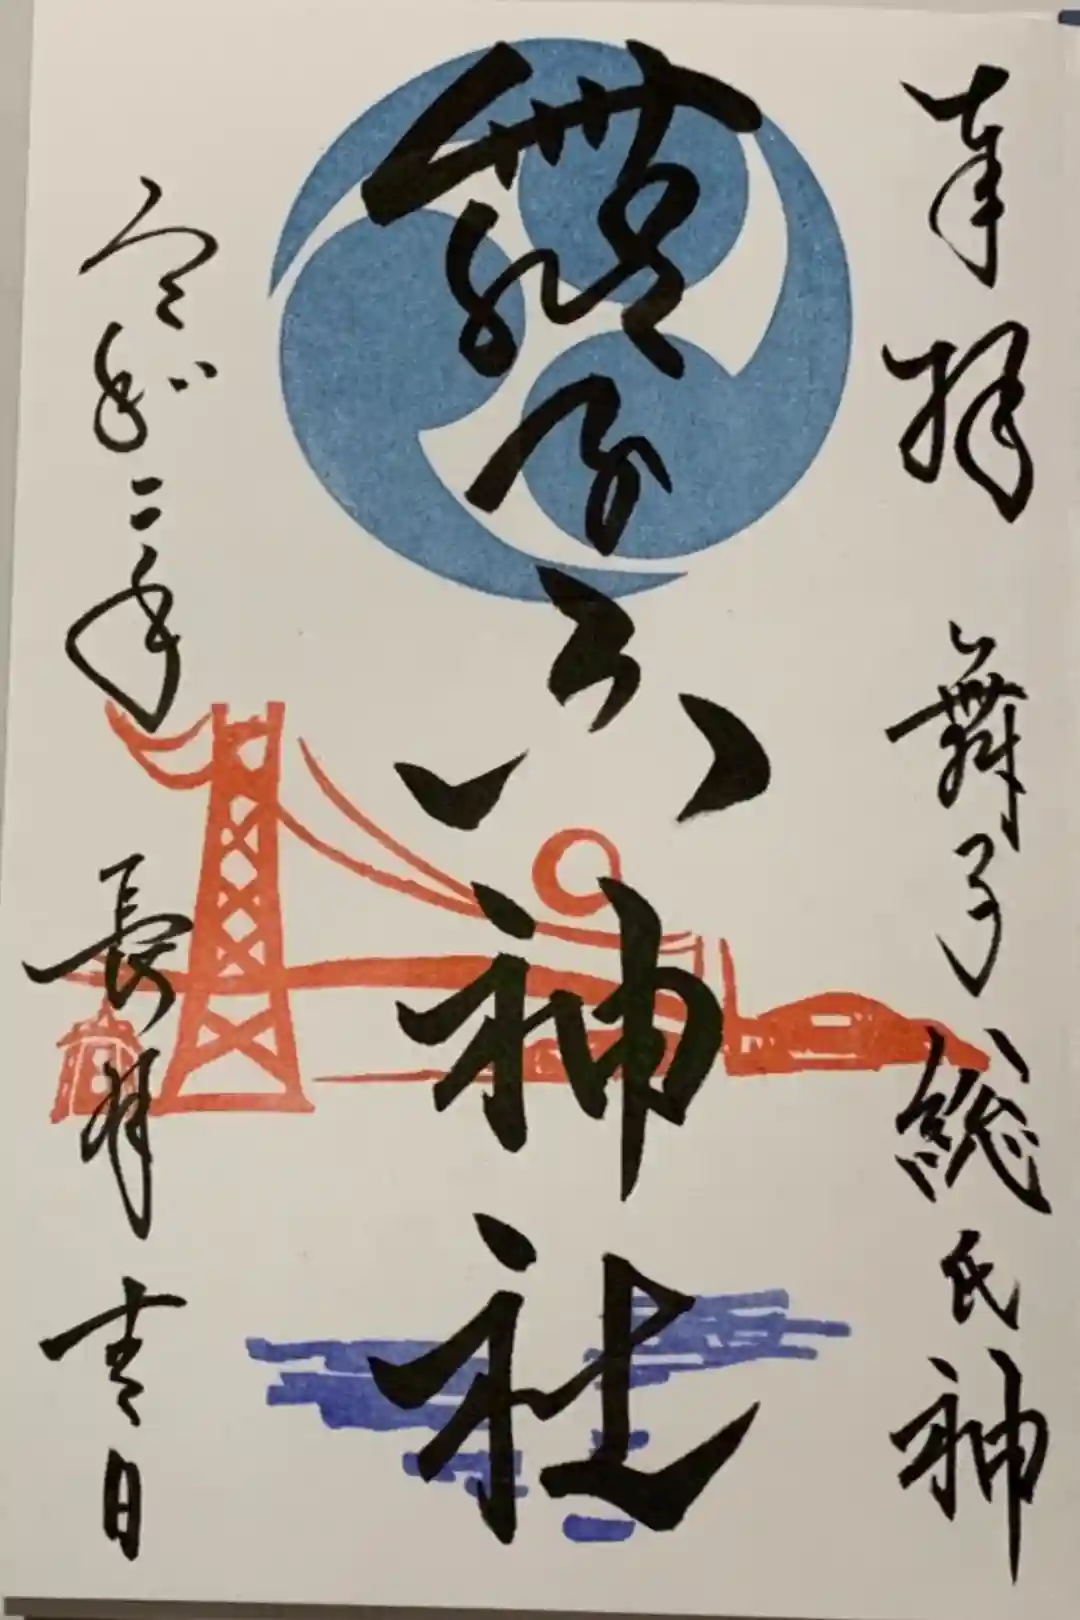 奉拝 舞子総氏神
舞子六神社
令和二年 長月 吉日